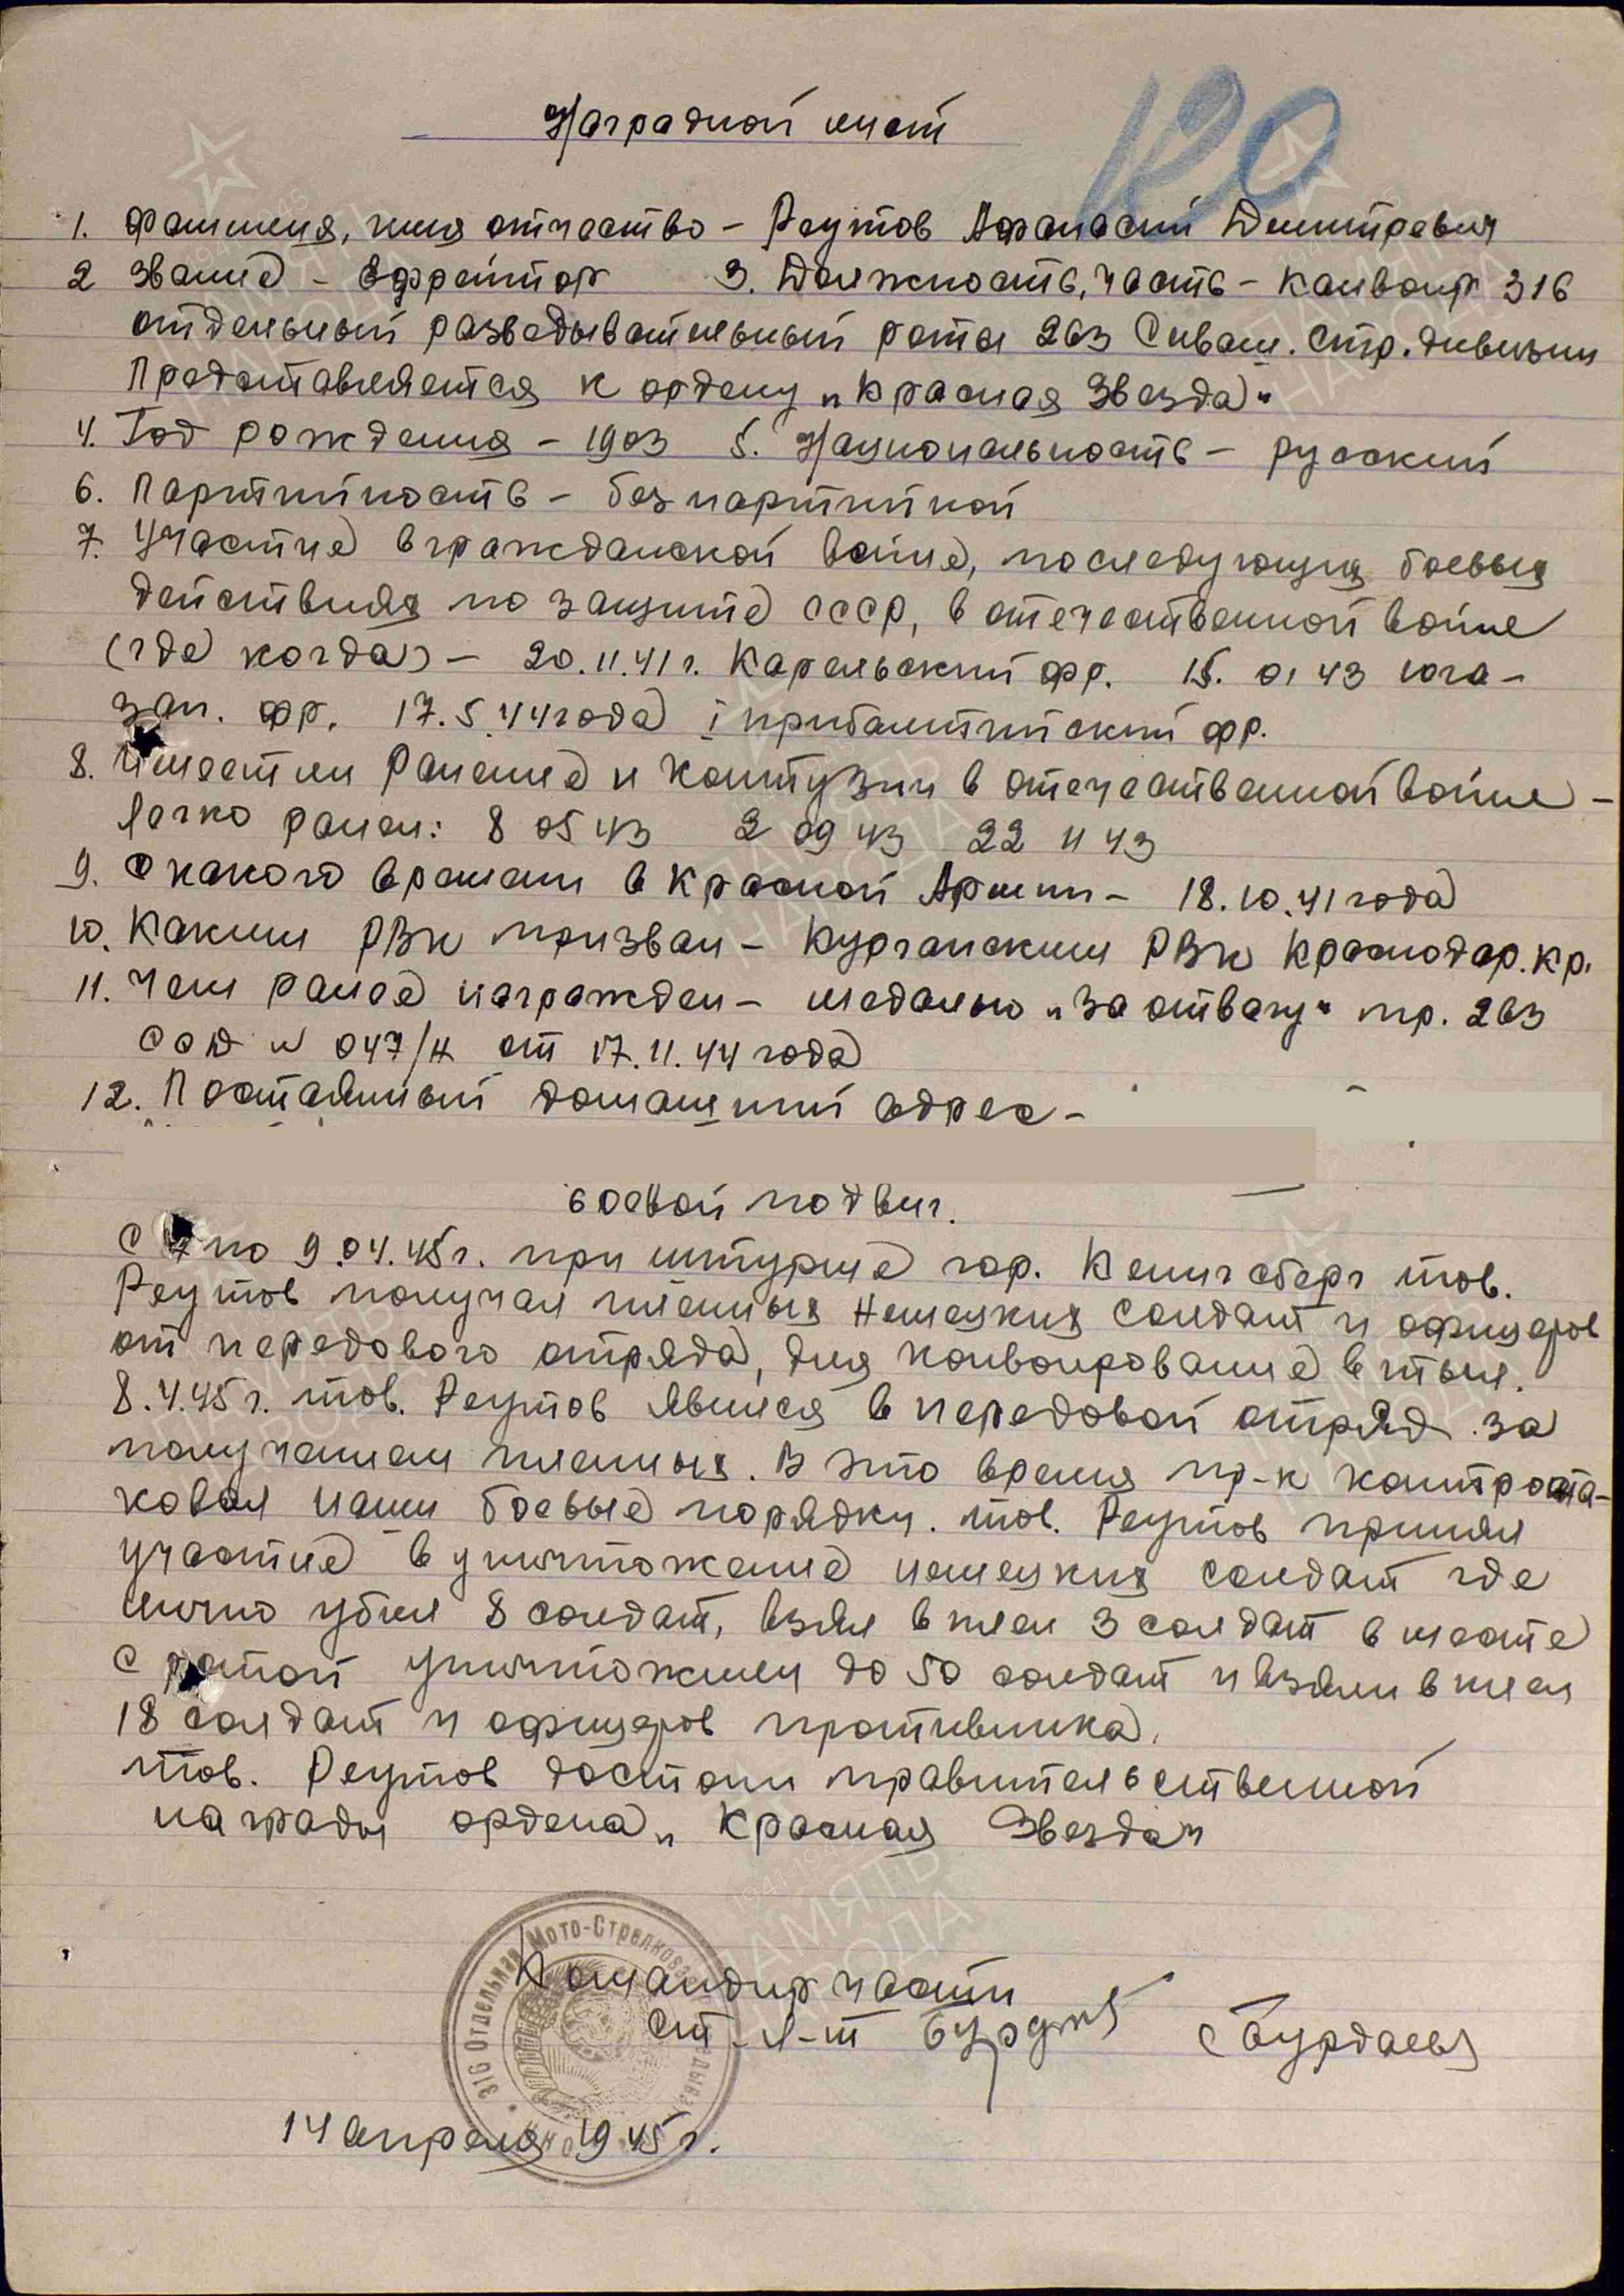 120
Наградной лист
1. Фамилия, имя отчество – Реутов Афанасий Дмитревич
2 Звание – Ефрейтор 3. Должность, часть – Канвоир 316
отдельный разведывательный роты 263 Сиваш. стр. дивизии
Представляется к ордену „Красная Звезда"
4. Год рождения – 1903 5. Национальность – русский
6. Партийность – безпартийной
7. Участие в гражданской войне, последующия боевыя
действиях по защите СССР, в отечественной войне
(где когда) – 20.11.41 г. Карельский фр. 15. 01 43 юга-
зап. фр. 17.5.44 года I прибалтийский фр.
8. Имеет ли ранение и контузии в отечественной войне –
Легко ранен: 8 05 43 2 09 43 22 11 43
9. С какого времени в Красной Армии – 18.10.41 года
10. Каким РВК призван – Курганским РВК Краснодар. кр.
11. Чем ранее награжден – медалью „За отвагу" пр. 263
ССД № 047/н от 17.11.44 года
12. Постоянный домашний адрес –
боевой подвиг.
С 7 по 9.04.45 г. при штурме гор. Кенигсберг тов.
Реутов получал пленных немецких солдат и офицеров
от передового отряда, для конвоирование в тыл.
8.4.45 г. тов. Реутов явился в передовой отряд за
получением пленных. В это время пр-к контрата-
ковал наши боевые порядки. тов. Реутов принял
участие в уничтожение немецких солдат где
лично убил 8 солдат, взял в плен 3 солдат в месте
с ротой уничтожили до 50 солдат и взяли в плен
18 солдат и офицеров противника.
тов. Реутов достоин правительственной
награды ордена „Красная Звезда"
Командир части
ст. л-т (Бурдаев)
316 Отдельная Мото-Стрелковая
14 апреля 1945 г.
ПАМЯТЬ
НАРОДА